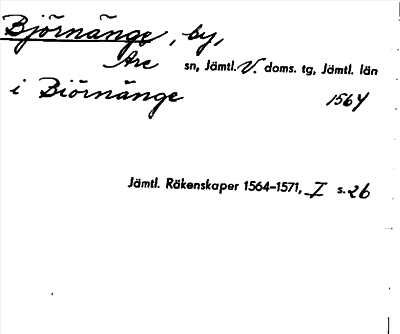 Björnänge, by,
Åre sn, Jämtl. V. doms. tg, Jämtl. län
i Biörnänge 1564
Jämtl. Räkenskaper 1564-1571, I s. 26